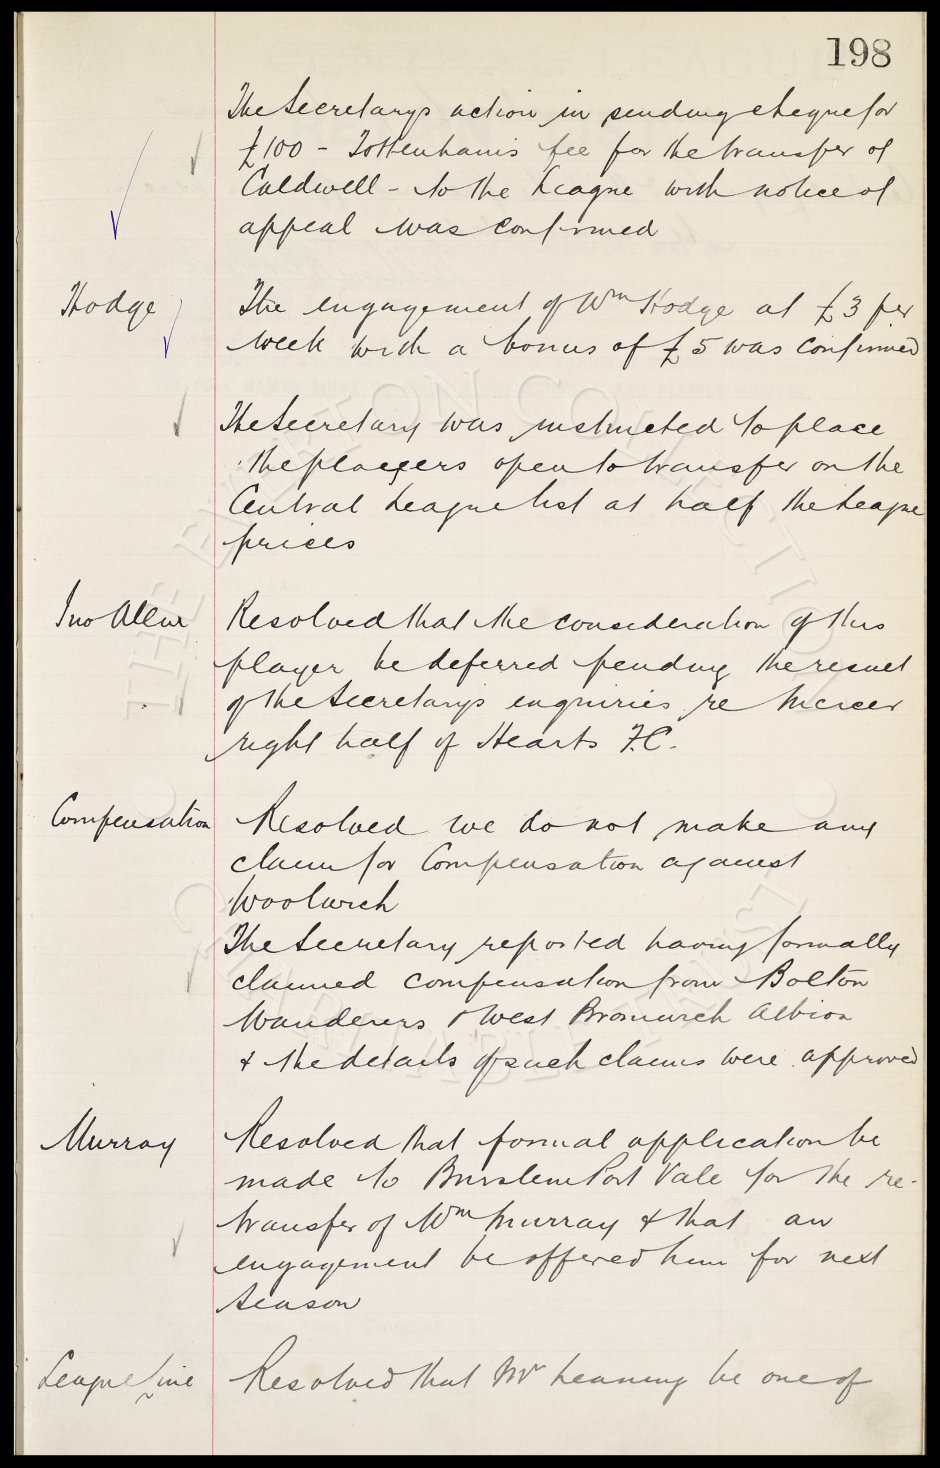 198
The Secretarys action in sending cheque for
£100 - Tottenhams fee for the transfer of
Caldwell - to the League with notice of
appeal was confirmed
Hodge The engagement of Wm Hodge at £3 per
week with a bonus of £5 was confirmed
The Secretary was instructed to place
the players open to transfer on the
Central League list at half the League
prices
Jno Allen Resolved that the consideration of this
player be deferred pending the result
of the Secretarys enquiries re Mercer
right half of Hearts F.C.
Compensation Resolved we do not make any
claim for Compensation against
Woolwich
The Secretary reported having formally
claimed compensation from Bolton
Wanderers & West Bromwich Albion
& the details of such claims were approved
Murray Resolved that formal application be
made to Burslem Port Vale for the re-
transfer of Wm Murray & that an
engagement be offered him for next
Season
League Resolved that Mr be one of